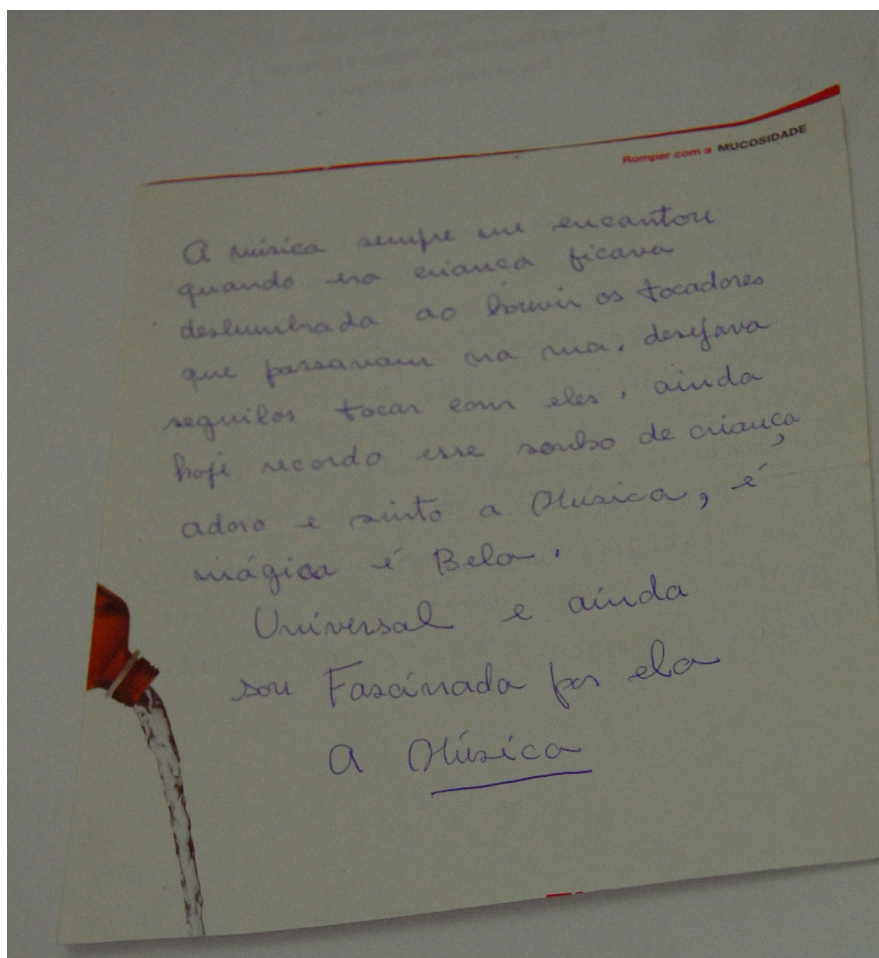 Romper com a MUCOSIDADE
A música sempre me encantou
quando era criança ficava
deslumbrada ao os tocadores
que passavam na rua. desejava
seguilos tocar com eles, ainda
hoje recordo esse sonho de criança
adoro e sinto a Música, é
mágica é Bela.
Universal e ainda
sou Fascinada por ela
A Música